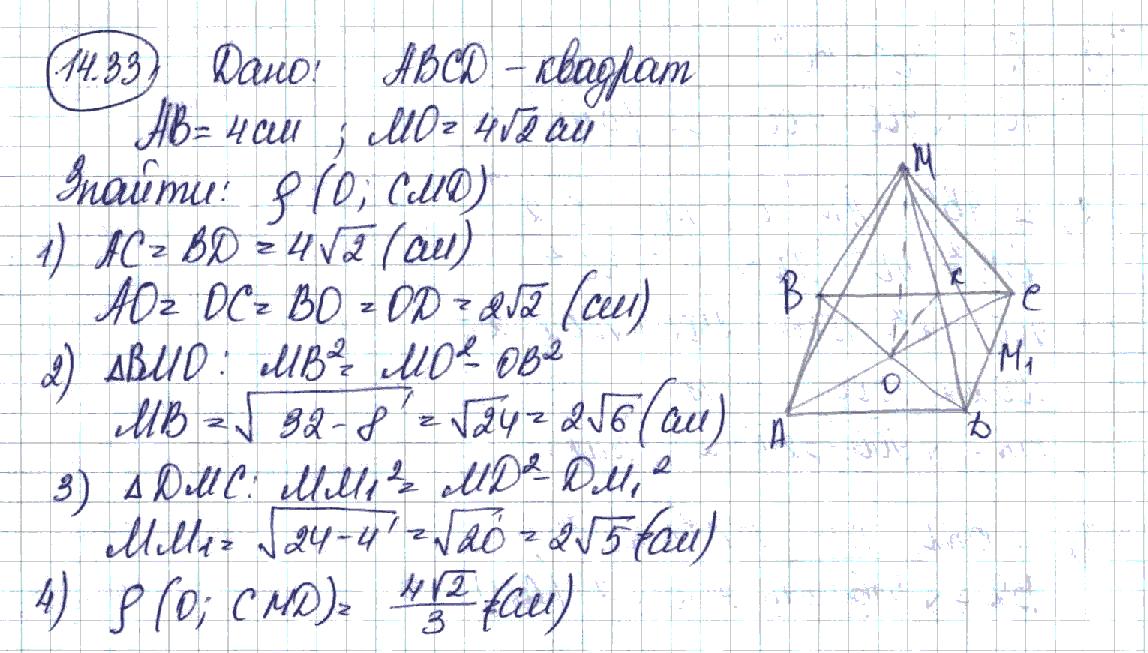 14.33 Дано: ABCD - квадрат
AB = 4 см ; MO = 4√2 см
Знайти: ρ (O; CMD)
1) AC = BD = 4√2 (см)
AO = OC = BO = OD = 2√2 (см)
2) ΔBMO: MB² = MO² - OB²
MB = √32 - 8 = √24 = 2√6 (см)
3) ΔDMC: MM₁² = MD² - DM₁²
MM₁ = √24 - 4 = √20 = 2√5 (см)
4) ρ (O; CMD) = 4√2/3 (см)
M
B
K
C
M₁
O
A
D